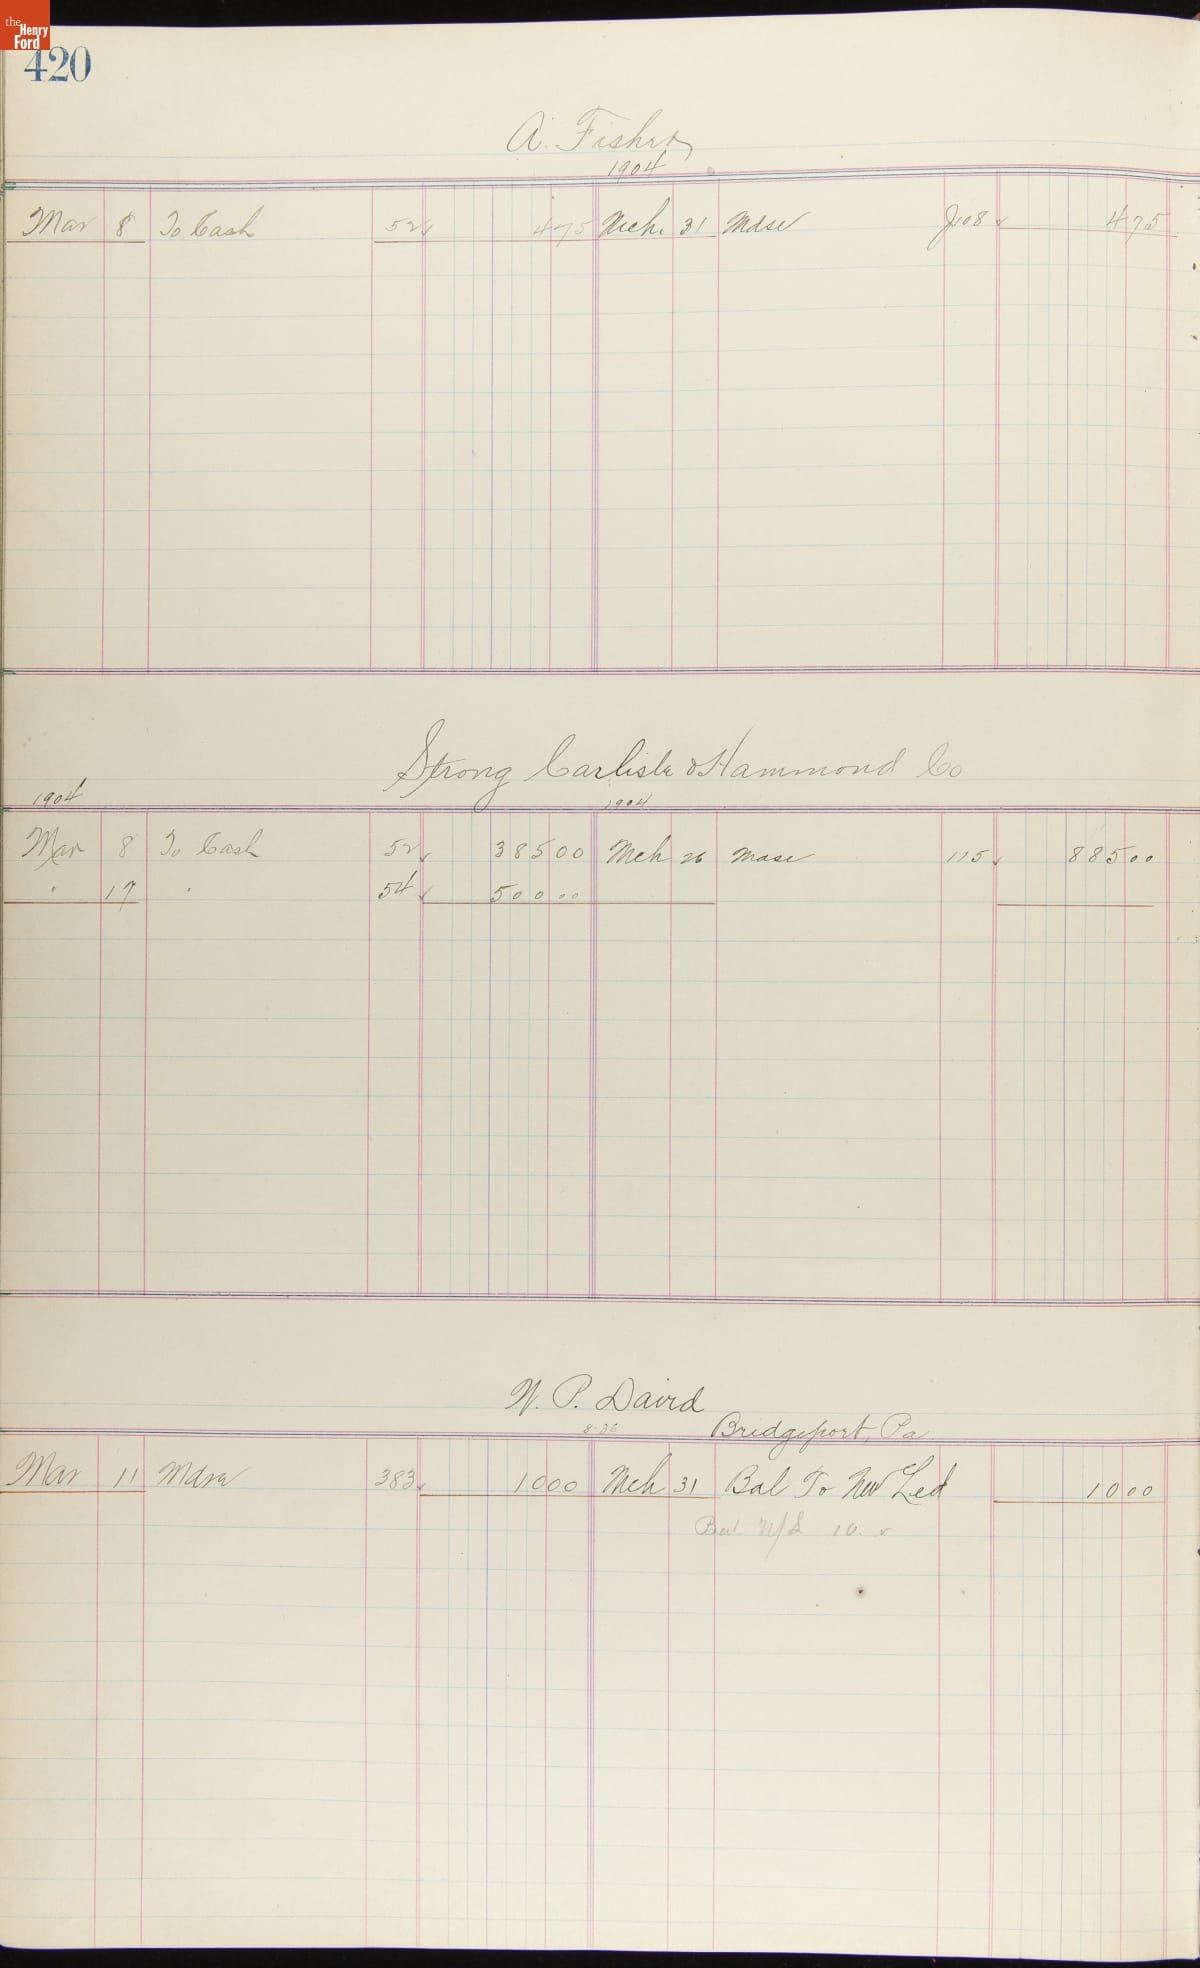 the
Henry
Ford
420
A. Fisher
1904
Mar 8 To Cash 52 475 Mch. 31 Mdse J108 475
Strong Carlisle & Hammond Co
1904 1904
Mar 8 To Cash 52 38500 Mch 26 Mdse 115 88500
" 17 " 54 50000
W. P. David
Bridgeport, Pa
Mar 11 Mdse 383 1000 Mch 31 Bal To New Led 1000
Bal N/L 10.